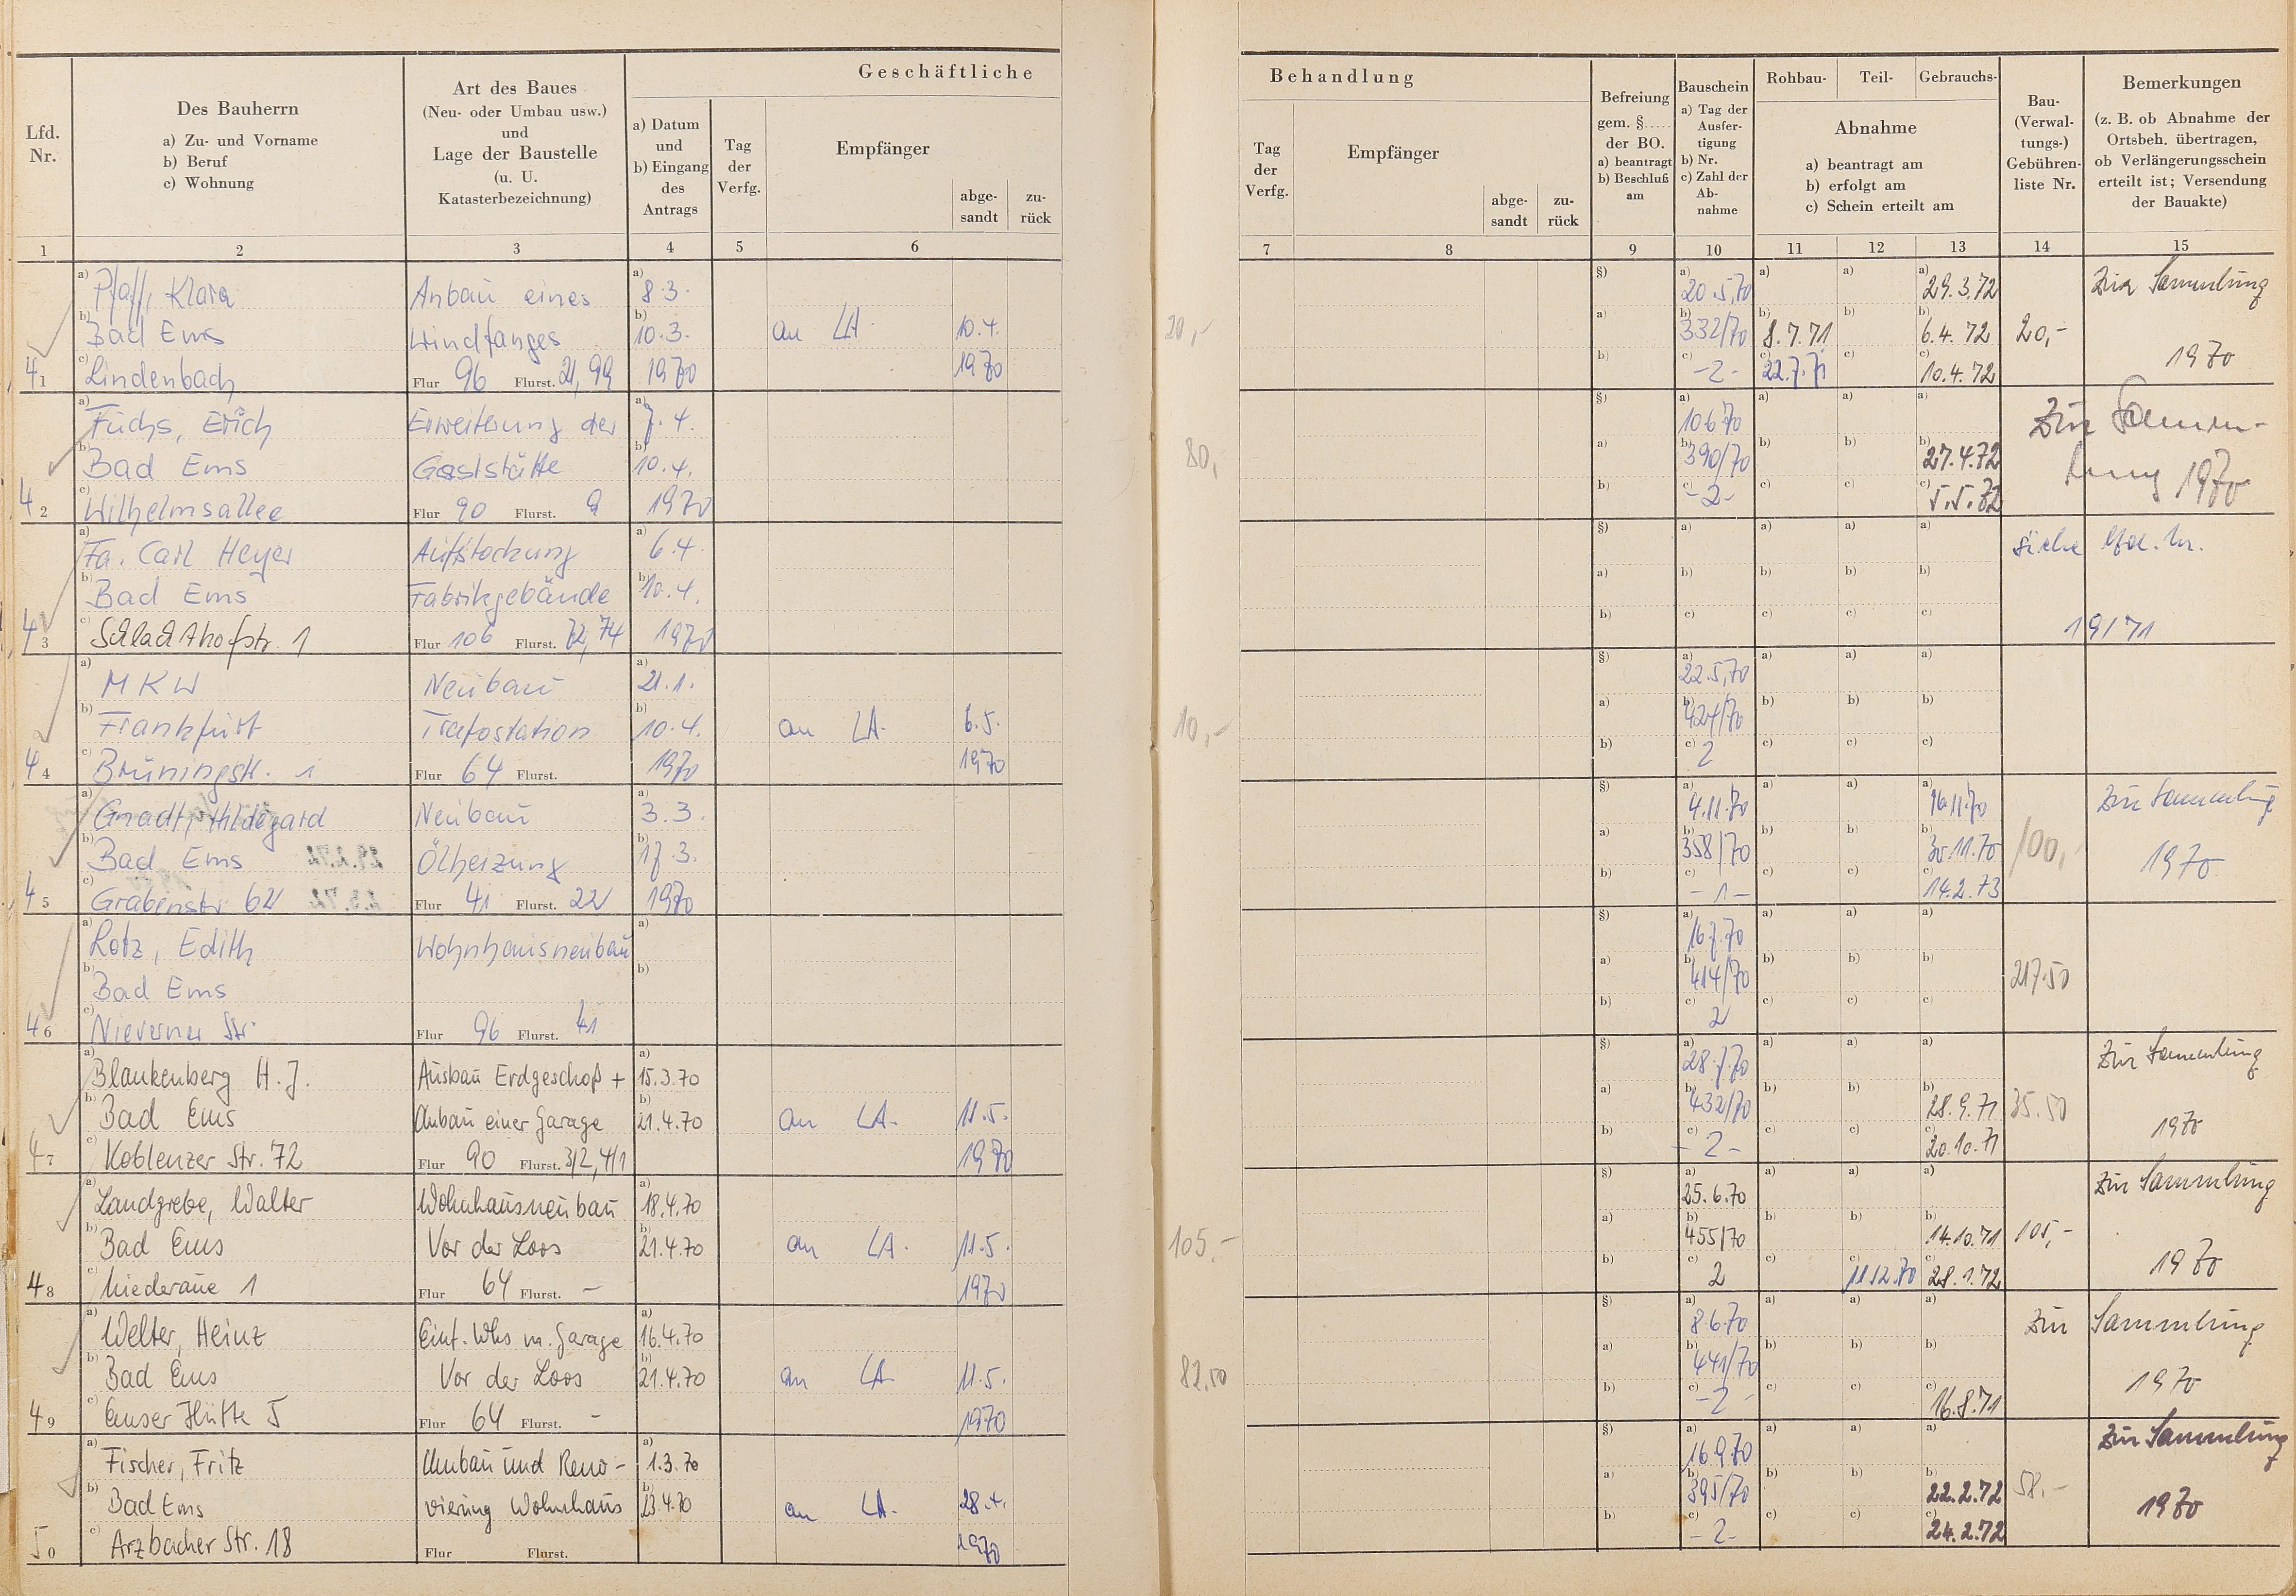 Geschäftliche
Lfd. Nr.
Des Bauherrn
a) Zu- und Vorname
b) Beruf
c) Wohnung
Art des Baues
(Neu- oder Umbau usw.)
und
Lage der Baustelle
(u. U.
Katasterbezeichnung)
a) Datum
und
b) Eingang
des
Antrags
Tag
der
Verfg.
Empfänger
abge-
sandt
zu-
rück
1 2 3 4 5 6
Behandlung
Tag
der
Verfg.
Empfänger
abge-
sandt
zu-
rück
Befreiung
gem. §.....
der BO.
a) beantragt
b) Beschluß
am
Bauschein
a) Tag der
Ausfer-
tigung
b) Nr.
c) Zahl der
Ab-
nahme
Rohbau- Teil- Gebrauchs-
Abnahme
a) beantragt am
b) erfolgt am
c) Schein erteilt am
Bau-
(Verwal-
tungs-)
Gebühren-
liste Nr.
Bemerkungen
(z. B. ob Abnahme der
Ortsbeh. übertragen,
ob Verlängerungsschein
erteilt ist; Versendung
der Bauakte)
7 8 9 10 11 12 13 14 15
a) Pfaff, Klara Anbau eines a) 8.3. §) a) 20.5.70 a) a) a) 29.3.72 Zur Sammlung
b) Bad Ems Windfanges b) 10.3. an LA. 10.4. 20,- a) b) 332/70 b) 8.7.71 b) b) 6.4.72 20,-
41 c) Lindenbach Flur 96 Flurst. 21, 99 1970 1970 b) c) -2- c) 22.7.71 c) c) 10.4.72 1970
a) Fuchs, Erich Erweiterung der a) 7.4. §) a) 10.6.70 a) a) a) Zur Samm-
b) Bad Ems Gaststätte b) 10.4. 80,- a) b) 390/70 b) b) b) 27.4.72 lung 1970
42 c) Wilhelmsallee Flur 90 Flurst. 9 1970 b) c) -2- c) c) c) 5.5.72
a) Fa. Carl Heyer Aufstockung a) 6.4. §) a) a) a) a) siehe lfd. Nr.
b) Bad Ems Fabrikgebäude b) 10.4. a) b) b) b) b)
43 c) Schlachthofstr. 1 Flur 106 Flurst. 72, 74 1970 b) c) c) c) c) 19/71
a) MKW Neubau a) 21.1. §) a) 22.5.70 a) a) a)
b) Frankfurt Trafostation b) 10.4. an LA. 6.5. 10,- a) b) 424/70 b) b) b)
44 c) Brüningstr. 1 Flur 64 Flurst. 1970 1970 b) c) 2 c) c) c)
a) Gnadt, Hildegard Neubau a) 3.3. §) a) 4.11.70 a) a) a) 16.11.70 Zur Sammlung
b) Bad Ems Ölheizung b) 17.3. a) b) 358/70 b) b) b) 30.11.70 100,-
45 c) Grabenstr. 62 Flur 41 Flurst. 22 1970 b) c) -1- c) c) c) 14.2.73 1970
a) Lotz, Edith Wohnhausneubau a) §) a) 16.7.70 a) a) a)
b) Bad Ems b) a) b) 414/70 b) b) b) 217.50
46 c) Nieverner Str. Flur 96 Flurst. 41 b) c) 2 c) c) c)
a) Blankenberg H. J. Ausbau Erdgeschoß + a) 15.3.70 §) a) 28.7.70 a) a) a) Zur Sammlung
b) Bad Ems Anbau einer Garage b) 21.4.70 an LA. 11.5. a) b) 432/70 b) b) b) 28.9.71 35.50
47 c) Koblenzer Str. 72 Flur 90 Flurst. 3/2, 4/1 1970 b) c) -2- c) c) c) 20.10.71 1970
a) Landgrebe, Walter Wohnhausneubau a) 18.4.70 §) a) 25.6.70 a) a) a) Zur Sammlung
b) Bad Ems Vor der Loos b) 21.4.70 an LA. 11.5. 105.- a) b) 455/70 b) b) b) 14.10.71 105,-
48 c) Niederaue 1 Flur 64 Flurst. - 1970 b) c) 2 c) c) 11.12.70 c) 28.1.72 1970
a) Welter, Heinz Einf. Whs m. Garage a) 16.4.70 §) a) 8.6.70 a) a) a) Zur Sammlung
b) Bad Ems Vor der Loos b) 21.4.70 an LA 11.5. 82.50 a) b) 441/70 b) b) b)
49 c) Emser Hütte 5 Flur 64 Flurst. - 1970 b) c) -2- c) c) c) 16.8.71 1970
a) Fischer, Fritz Umbau und Reno- a) 1.3.70 §) a) 16.9.70 a) a) a) Zur Sammlung
b) Bad Ems vierung Wohnhaus b) 23.4.70 an LA. 28.4. a) b) 395/70 b) b) b) 22.2.72 58.-
50 c) Arzbacher Str. 18 Flur Flurst. 1970 b) c) -2- c) c) c) 24.2.72 1970